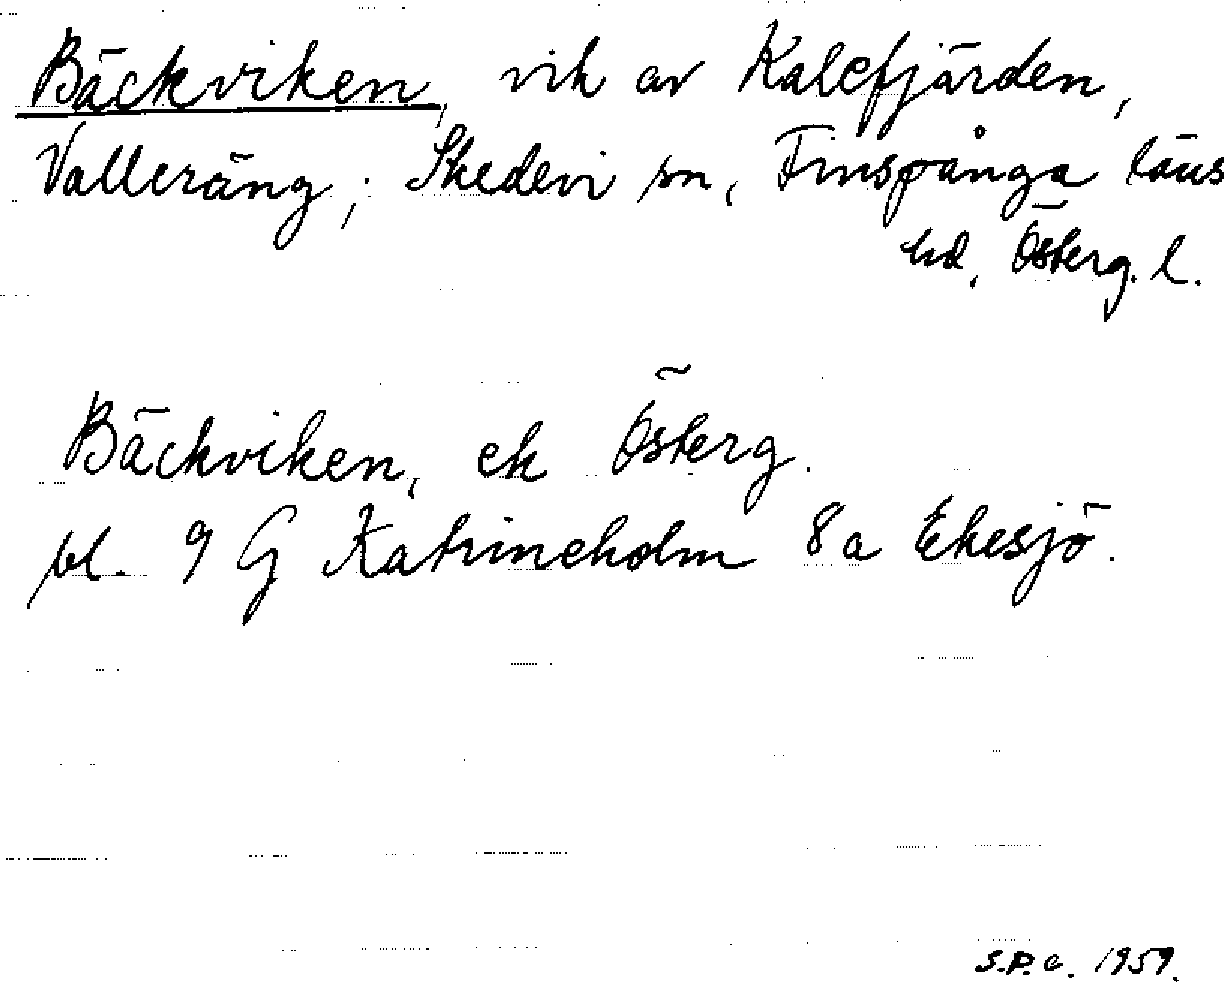 Bäckviken, vik av Kalefjärden,
Valleräng, Skedevi sn, Finspånga läns
hd, Österg. l.
Bäckviken, ek Österg.
bl. 9 G Katrineholm 8a Ekesjö.
S.P.C. 1959.